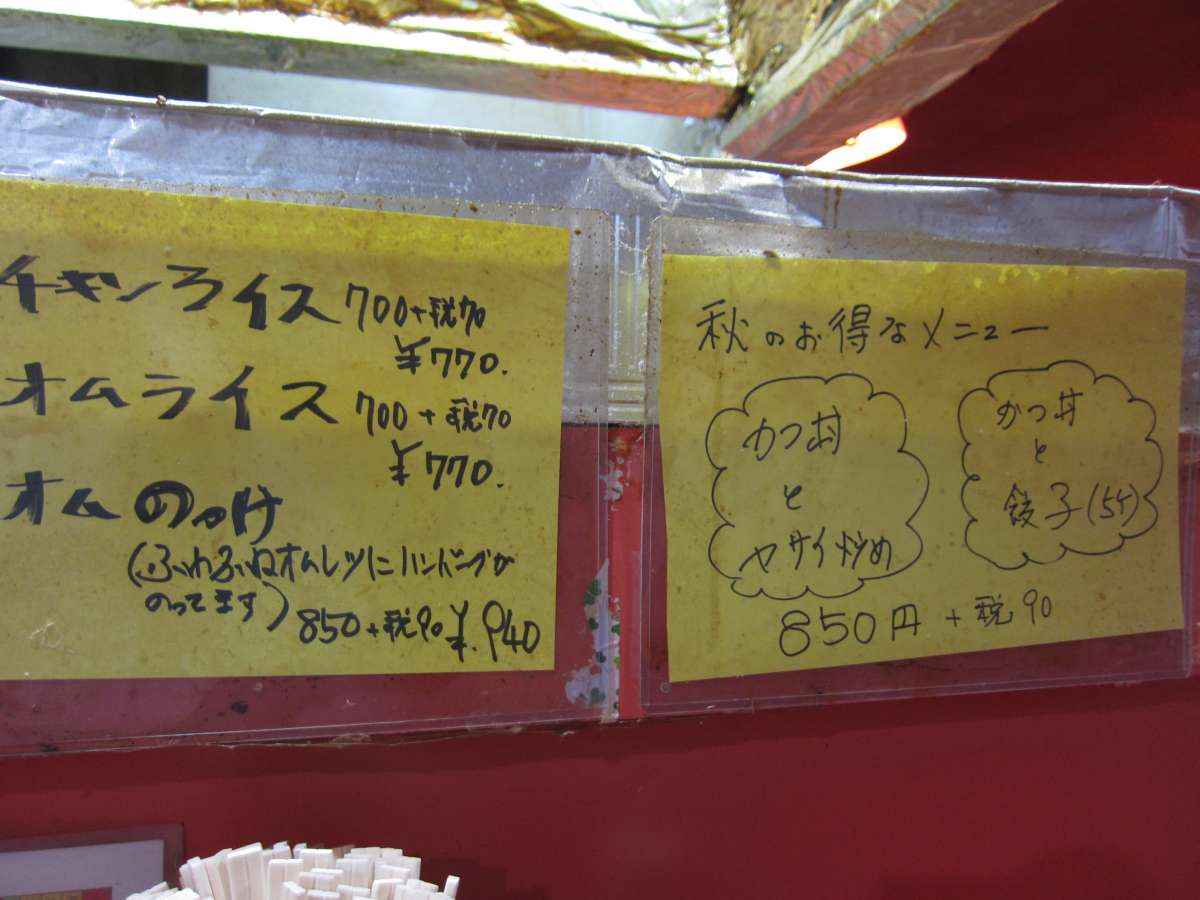 チキンライス 700+税70
¥770.
オムライス 700+税70
¥770.
オムのっけ
(ふわふわオムレツにハンバーグが
のってます) 850+税90 ¥.940
秋のお得なメニュー
かつ丼
と
ヤサイ炒め
かつ丼
と
餃子(5ケ)
850円+税90